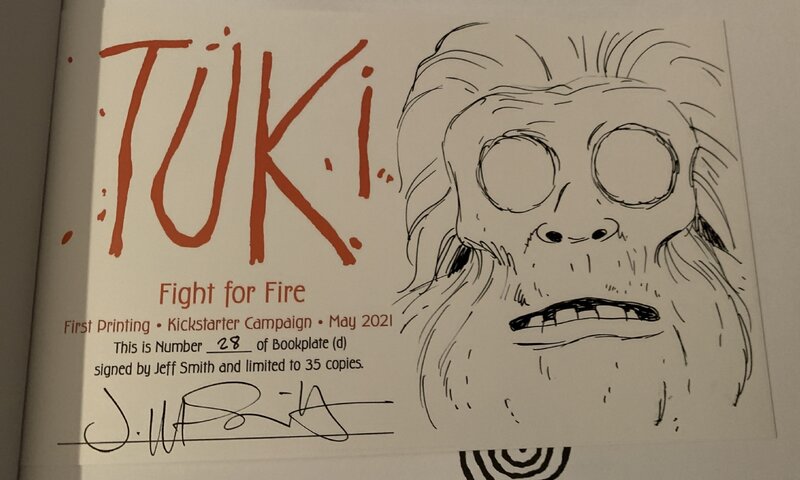 TUKI
Fight for Fire
First Printing • Kickstarter Campaign • May 2021
This is Number 28 of Bookplate (d)
signed by Jeff Smith and limited to 35 copies.
J. Smith